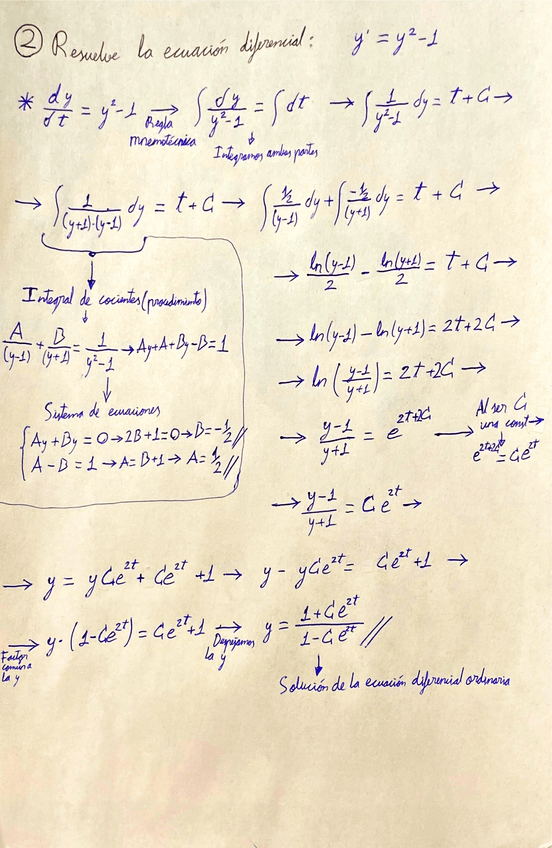 ② Resuelve la ecuación diferencial: y' = y²-1
* dy/dt = y²-1 → ∫ dy/(y²-1) = ∫ dt → ∫ 1/(y²-1) dy = t + C →
Regla mnemotécnica
Integramos ambas partes
→ ∫ 1/((y+1)·(y-1)) dy = t + C → ∫ (1/2)/(y-1) dy + ∫ (-1/2)/(y+1) dy = t + C →
Integral de cocientes (procedimiento)
A/(y-1) + B/(y+1) = 1/(y²-1) → Ay+A+By-B=1
Sistema de ecuaciones
Ay+By = 0 → 2B+1=0 → B=-1/2//
A-B = 1 → A=B+1 → A=1/2//
→ ln(y-1)/2 - ln(y+1)/2 = t + C →
→ ln(y-1) - ln(y+1) = 2t+2C →
→ ln((y-1)/(y+1)) = 2t+2C →
→ (y-1)/(y+1) = e^(2t+2C) →
Al ser C
una const →
e^(2t+2C) = Ce^(2t)
→ (y-1)/(y+1) = Ce^(2t) →
→ y = yCe^(2t) + Ce^(2t) + 1 → y - yCe^(2t) = Ce^(2t) + 1 →
→ y·(1-Ce^(2t)) = Ce^(2t)+1 → y = (1+Ce^(2t))/(1-Ce^(2t)) //
Factor común a la y
Despejamos la y
Solución de la ecuación diferencial ordinaria